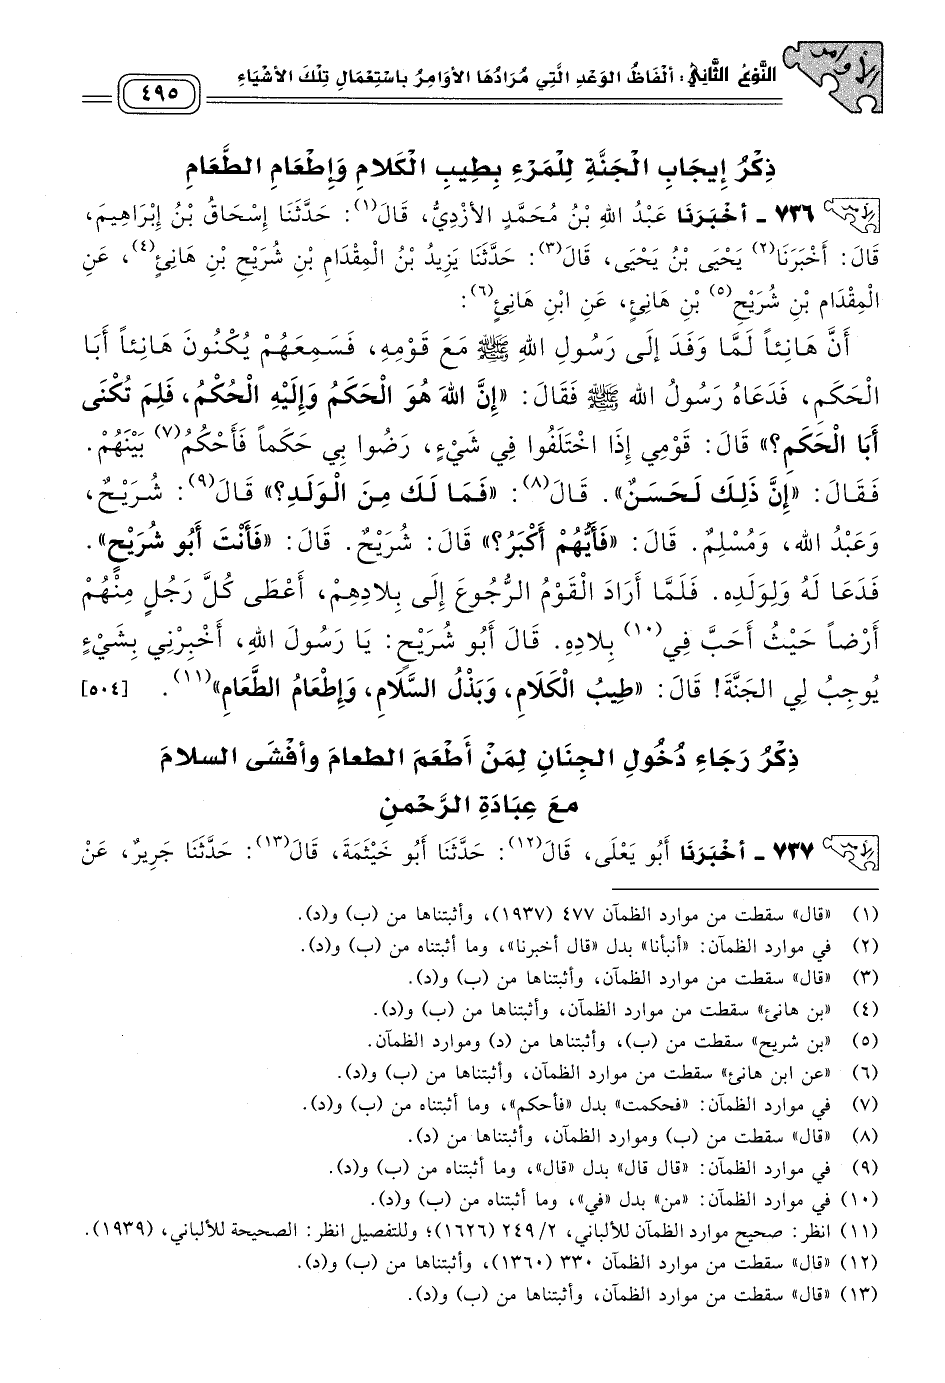 الأوامر
النَّوْعُ الثَّانِي: أَلْفَاظُ الوَعْدِ الَّتِي مُرَادُهَا الأَوَامِرُ بِاسْتِعْمَالِ تِلْكَ الأَشْيَاءِ
٤٩٥
ذِكْرُ إِيجَابِ الْجَنَّةِ لِلْمَرْءِ بِطِيبِ الْكَلَامِ وَإِطْعَامِ الطَّعَامِ
٧٣٦ - أَخْبَرَنَا عَبْدُ اللهِ بْنُ مُحَمَّدٍ الأَزْدِيُّ، قَالَ(١): حَدَّثَنَا إِسْحَاقُ بْنُ إِبْرَاهِيمَ،
قَالَ: أَخْبَرَنَا(٢) يَحْيَى بْنُ يَحْيَى، قَالَ(٣): حَدَّثَنَا يَزِيدُ بْنُ الْمِقْدَامِ بْنِ شُرَيْحِ بْنِ هَانِئٍ(٤)، عَنِ
الْمِقْدَامِ بْنِ شُرَيْحِ(٥) بْنِ هَانِئٍ، عَنِ ابْنِ هَانِئٍ(٦):
أَنَّ هَانِئاً لَمَّا وَفَدَ إِلَى رَسُولِ اللهِ ﷺ مَعَ قَوْمِهِ، فَسَمِعَهُمْ يُكْنُونَ هَانِئاً أَبَا
الْحَكَمِ، فَدَعَاهُ رَسُولُ اللهِ ﷺ فَقَالَ: «إِنَّ اللهَ هُوَ الْحَكَمُ وَإِلَيْهِ الْحُكْمُ، فَلِمَ تُكْنَى
أَبَا الْحَكَمِ؟» قَالَ: قَوْمِي إِذَا اخْتَلَفُوا فِي شَيْءٍ، رَضُوا بِي حَكَماً فَأَحْكُمُ(٧) بَيْنَهُمْ.
فَقَالَ: «إِنَّ ذَلِكَ لَحَسَنٌ». قَالَ(٨): «فَمَا لَكَ مِنَ الْوَلَدِ؟» قَالَ(٩): شُرَيْحٌ،
وَعَبْدُ اللهِ، وَمُسْلِمٌ. قَالَ: «فَأَيُّهُمْ أَكْبَرُ؟» قَالَ: شُرَيْحٌ. قَالَ: «فَأَنْتَ أَبُو شُرَيْحٍ».
فَدَعَا لَهُ وَلِوَلَدِهِ. فَلَمَّا أَرَادَ الْقَوْمُ الرُّجُوعَ إِلَى بِلَادِهِمْ، أَعْطَى كُلَّ رَجُلٍ مِنْهُمْ
أَرْضاً حَيْثُ أَحَبَّ فِي(١٠) بِلَادِهِ. قَالَ أَبُو شُرَيْحٍ: يَا رَسُولَ اللهِ، أَخْبِرْنِي بِشَيْءٍ
يُوجِبُ لِي الْجَنَّةَ! قَالَ: «طِيبُ الْكَلَامِ، وَبَذْلُ السَّلَامِ، وَإِطْعَامُ الطَّعَامِ»(١١). [٥٠٤]
ذِكْرُ رَجَاءِ دُخُولِ الجِنَانِ لِمَنْ أَطْعَمَ الطعامَ وأفْشَى السلامَ
معَ عِبَادَةِ الرَّحْمنِ
٧٣٧ - أَخْبَرَنَا أَبُو يَعْلَى، قَالَ(١٢): حَدَّثَنَا أَبُو خَيْثَمَةَ، قَالَ(١٣): حَدَّثَنَا جَرِيرٌ، عَنْ
(١) «قال» سقطت من موارد الظمآن ٤٧٧ (١٩٣٧)، وأثبتناها من (ب) و(د).
(٢) في موارد الظمآن: «أنبأنا» بدل «قال أخبرنا»، وما أثبتناه من (ب) و(د).
(٣) «قال» سقطت من موارد الظمآن، وأثبتناها من (ب) و(د).
(٤) «بن هانئ» سقطت من موارد الظمآن، وأثبتناها من (ب) و(د).
(٥) «بن شريح» سقطت من (ب)، وأثبتناها من (د) وموارد الظمآن.
(٦) «عن ابن هانئ» سقطت من موارد الظمآن، وأثبتناها من (ب) و(د).
(٧) في موارد الظمآن: «فحكمت» بدل «فأحكم»، وما أثبتناه من (ب) و(د).
(٨) «قال» سقطت من (ب) وموارد الظمآن، وأثبتناها من (د).
(٩) في موارد الظمآن: «قال قال» بدل «قال»، وما أثبتناه من (ب) و(د).
(١٠) في موارد الظمآن: «من» بدل «في»، وما أثبتناه من (ب) و(د).
(١١) انظر: صحيح موارد الظمآن للألباني، ٢/ ٢٤٩ (١٦٢٦)؛ وللتفصيل انظر: الصحيحة للألباني، (١٩٣٩).
(١٢) «قال» سقطت من موارد الظمآن ٣٣٠ (١٣٦٠)، وأثبتناها من (ب) و(د).
(١٣) «قال» سقطت من موارد الظمآن، وأثبتناها من (ب) و(د).